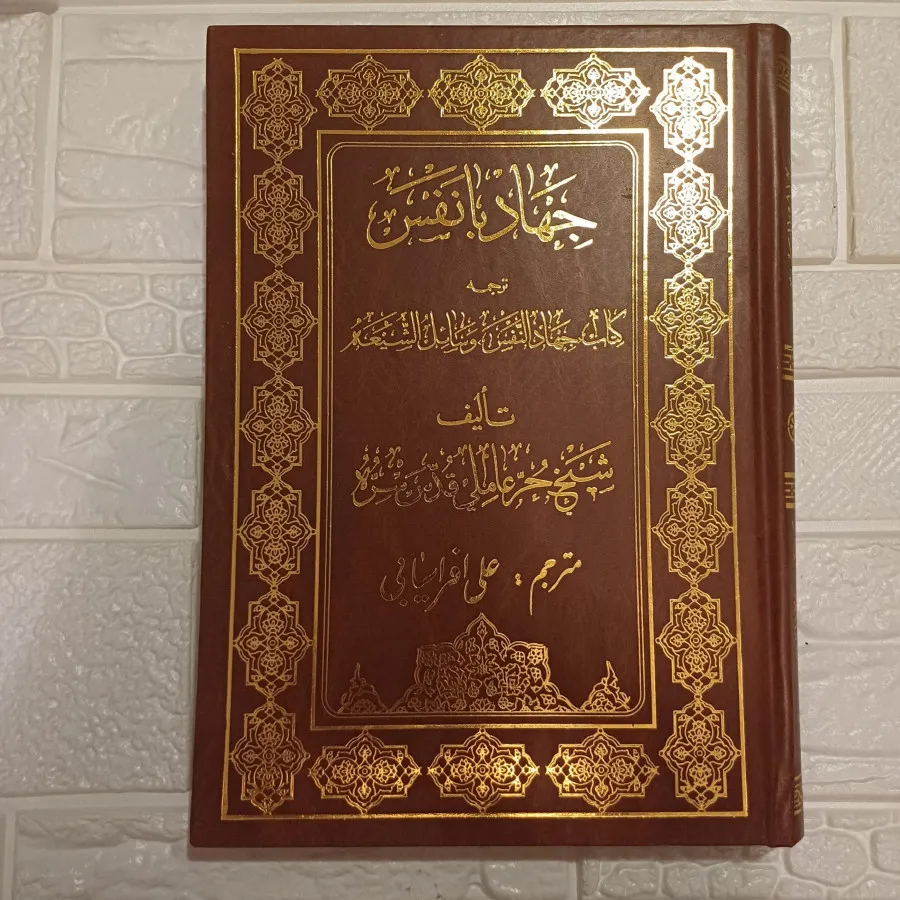 جِهاد با نَفس
ترجمه
کتاب جهاد النّفس وسائل الشّیعه
تألیف
شیخ حُرّ عاملی قدّس سرّه
مترجم: علی افراسیابی